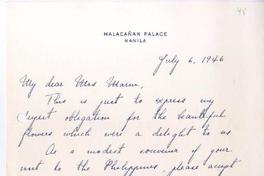 48
MALACAÑAN PALACE
MANILA
July 6, 1946
My dear Mrs
This is just to express my
deepest obligation for the beautiful
flowers which were a delight to us
As a modest souvenir of your
visit to the Philippines, please accept